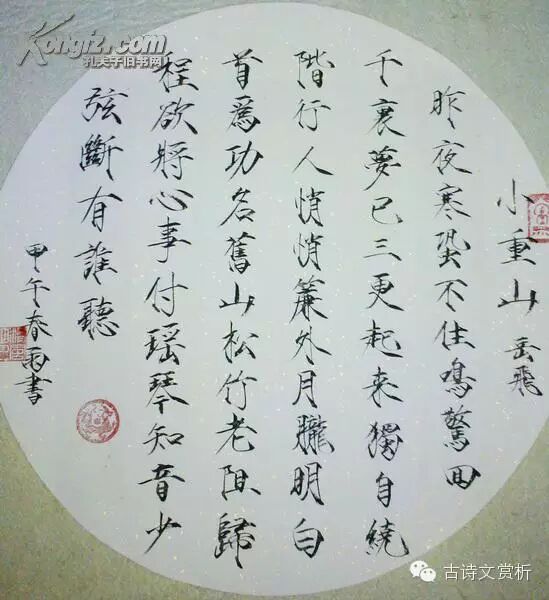 小重山 岳飛
昨夜寒蛩不住鳴驚回
千裏夢已三更起來獨自繞
階行人悄悄簾外月朧明白
首爲功名舊山松竹老阻歸
程欲將心事付瑶琴知音少
弦斷有誰聽
甲午春雨書
Kongfz.com
孔夫子旧书网
古诗文赏析